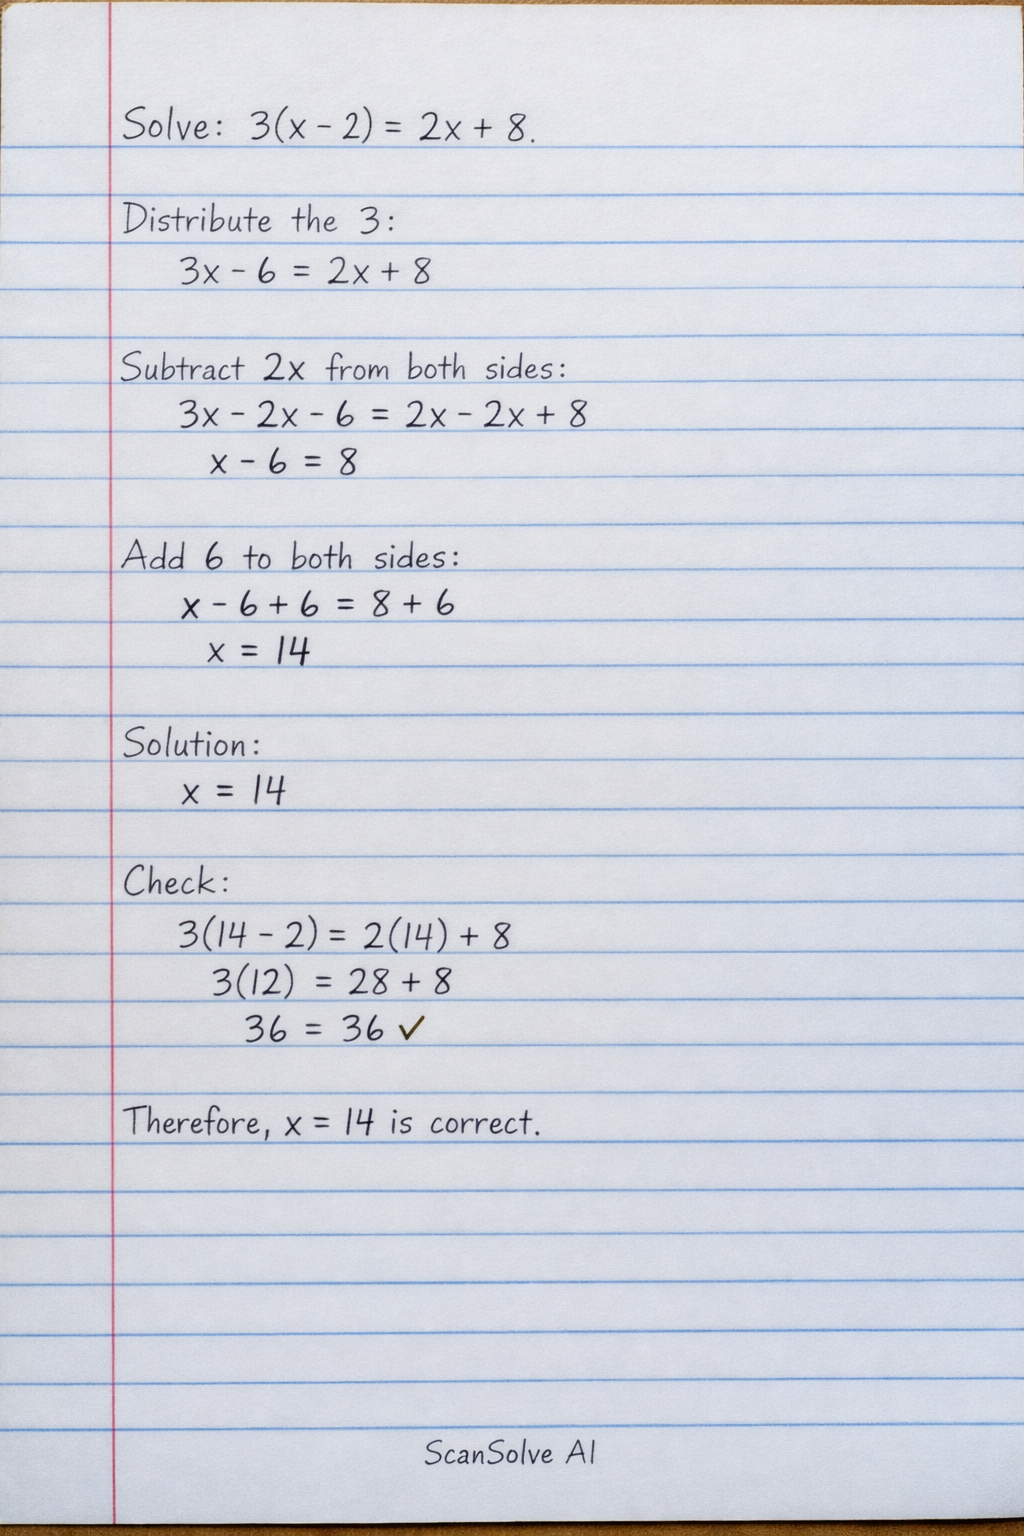 Solve: 3(x - 2) = 2x + 8.
Distribute the 3:
3x - 6 = 2x + 8
Subtract 2x from both sides:
3x - 2x - 6 = 2x - 2x + 8
x - 6 = 8
Add 6 to both sides:
x - 6 + 6 = 8 + 6
x = 14
Solution:
x = 14
Check:
3(14 - 2) = 2(14) + 8
3(12) = 28 + 8
36 = 36 ✓
Therefore, x = 14 is correct.
ScanSolve AI